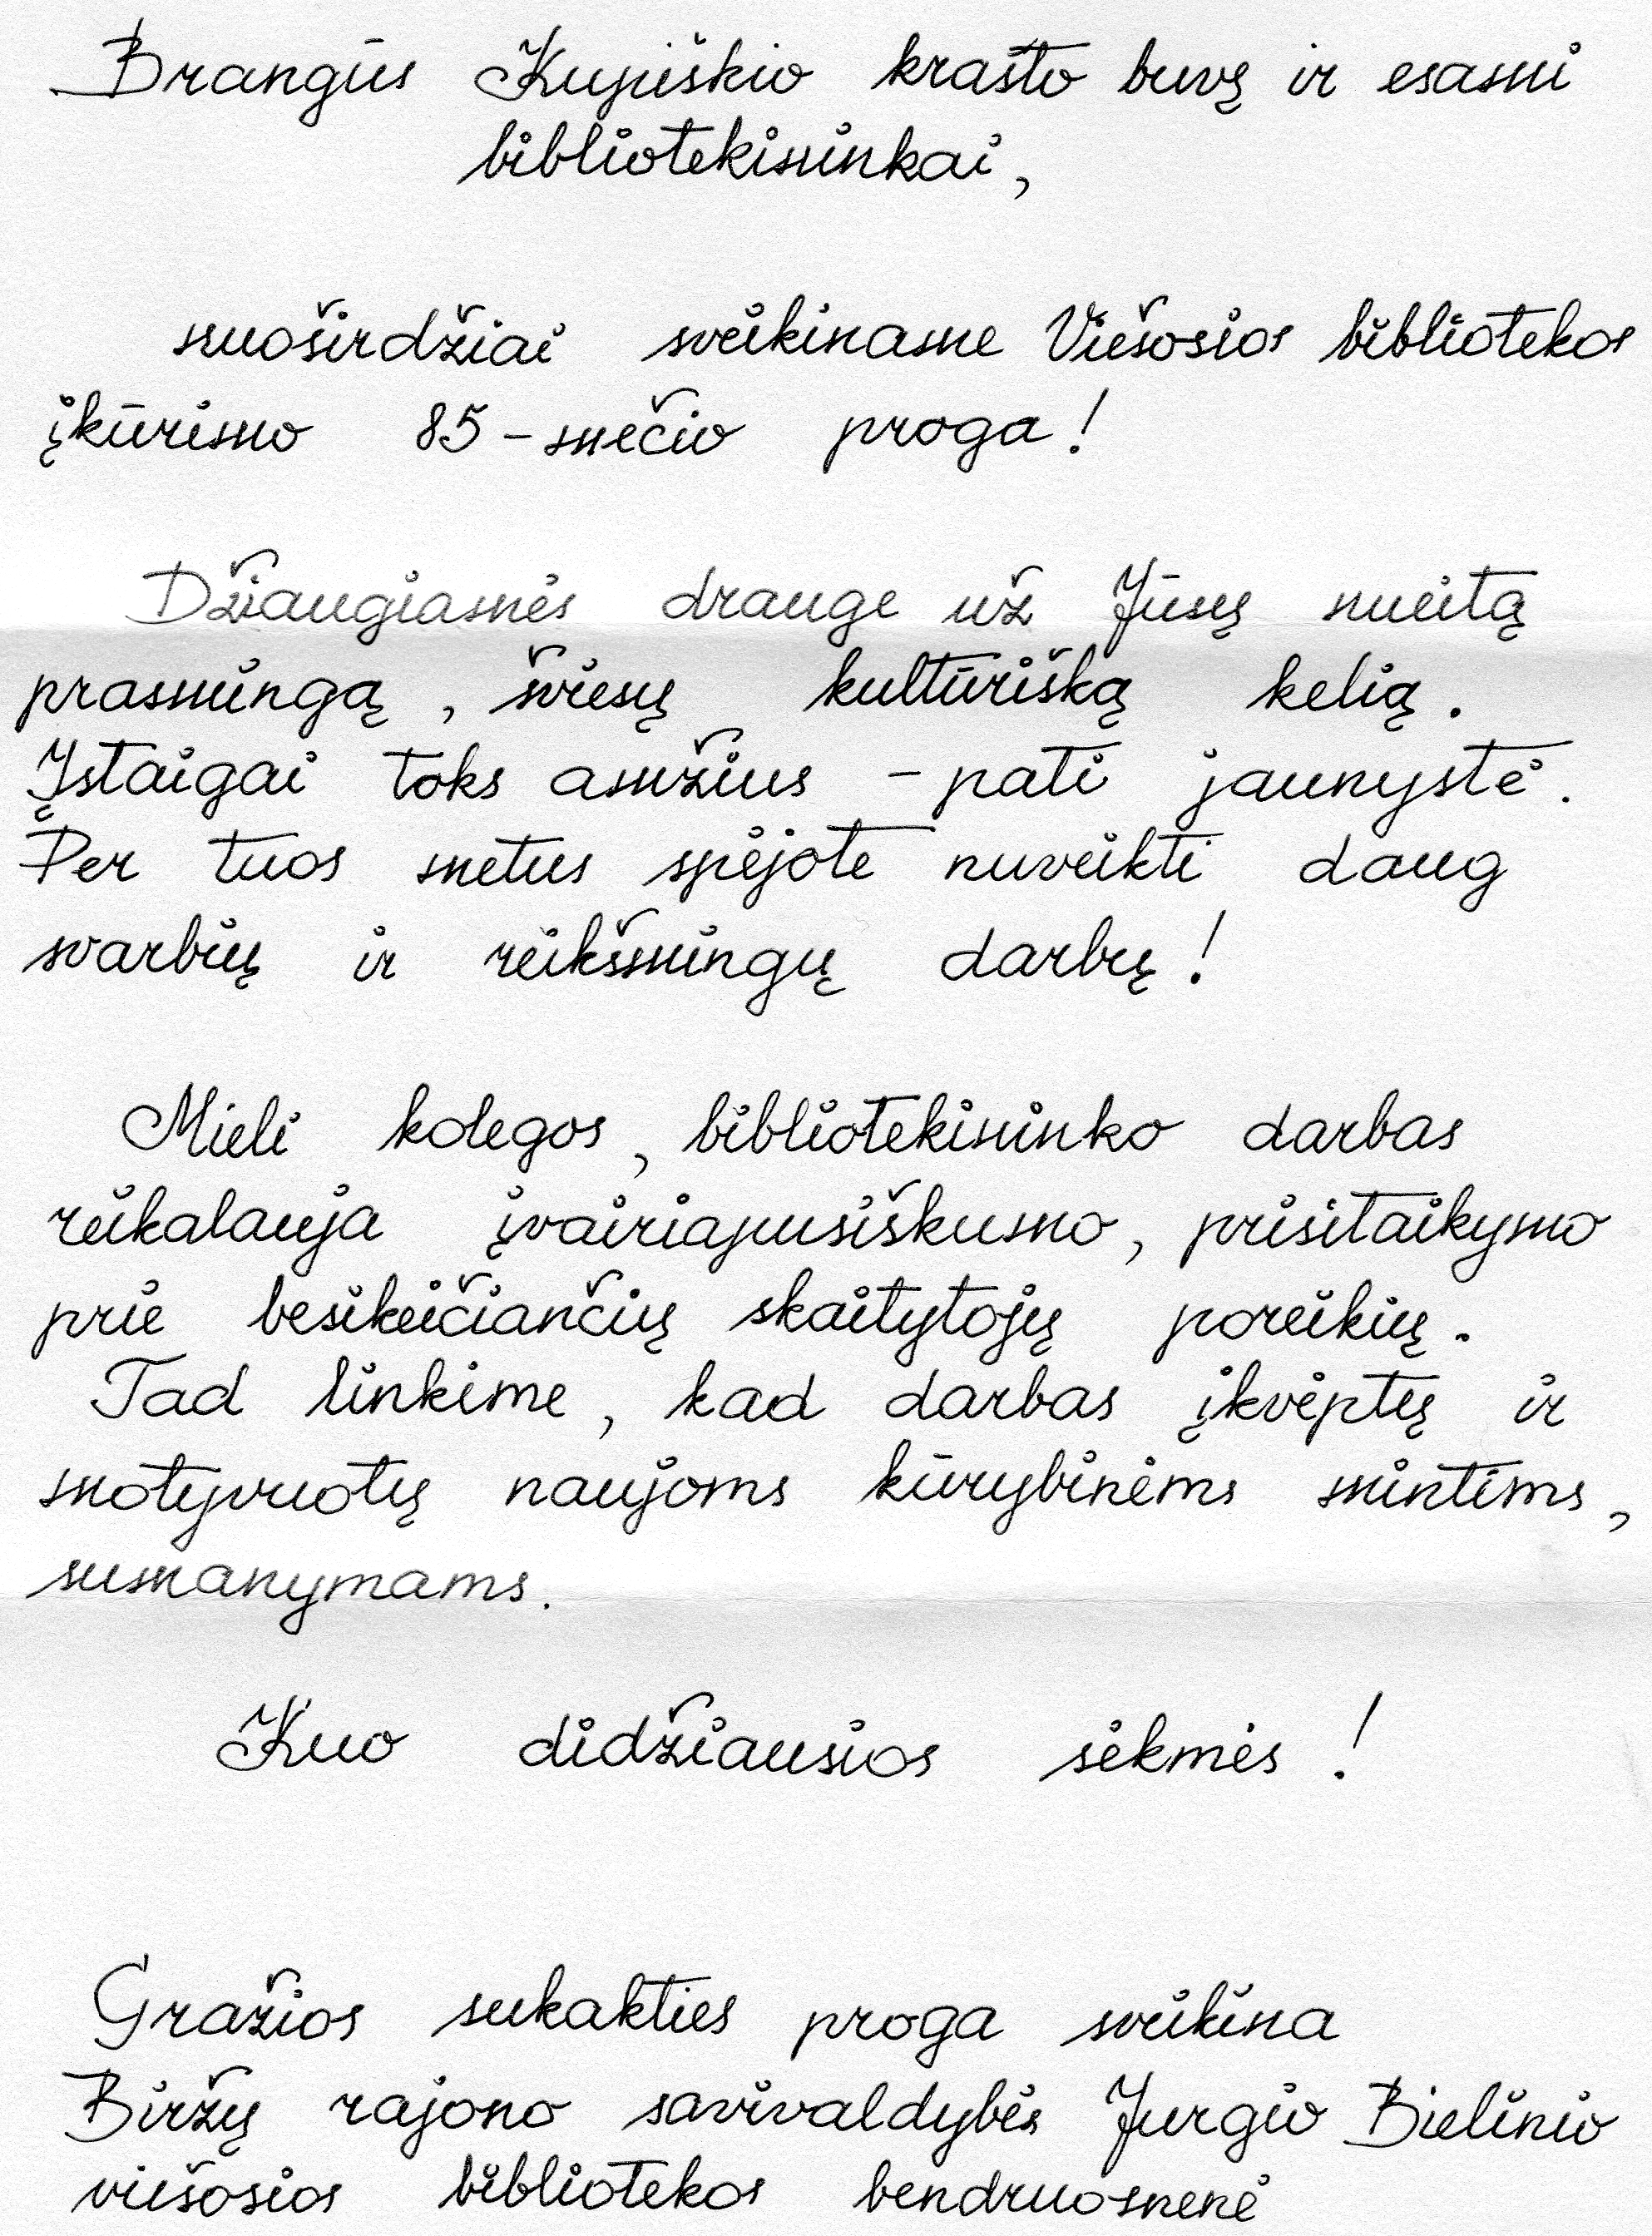 Brangūs Kupiškio krašto buvę ir esami
bibliotekininkai,
nuoširdžiai sveikiname Viešosios bibliotekos
įkūrimo 85-mečio proga!
Džiaugiamės drauge už Jūsų nueitą
prasmingą, šviesų kultūrišką kelią.
Įstaigai toks amžius - pati jaunystė.
Per tuos metus spėjote nuveikti daug
svarbių ir reikšmingų darbų!
Mieli kolegos, bibliotekininko darbas
reikalauja įvairiapusiškumo, prisitaikymo
prie besikeičiančių skaitytojų poreikių.
Tad linkime, kad darbas įkvėptų ir
motyvuotų naujoms kūrybinėms mintims,
sumanymams.
Kuo didžiausios sėkmės!
Gražios sukakties proga sveikina
Biržų rajono savivaldybės Jurgio Bielinio
viešosios bibliotekos bendruomenė